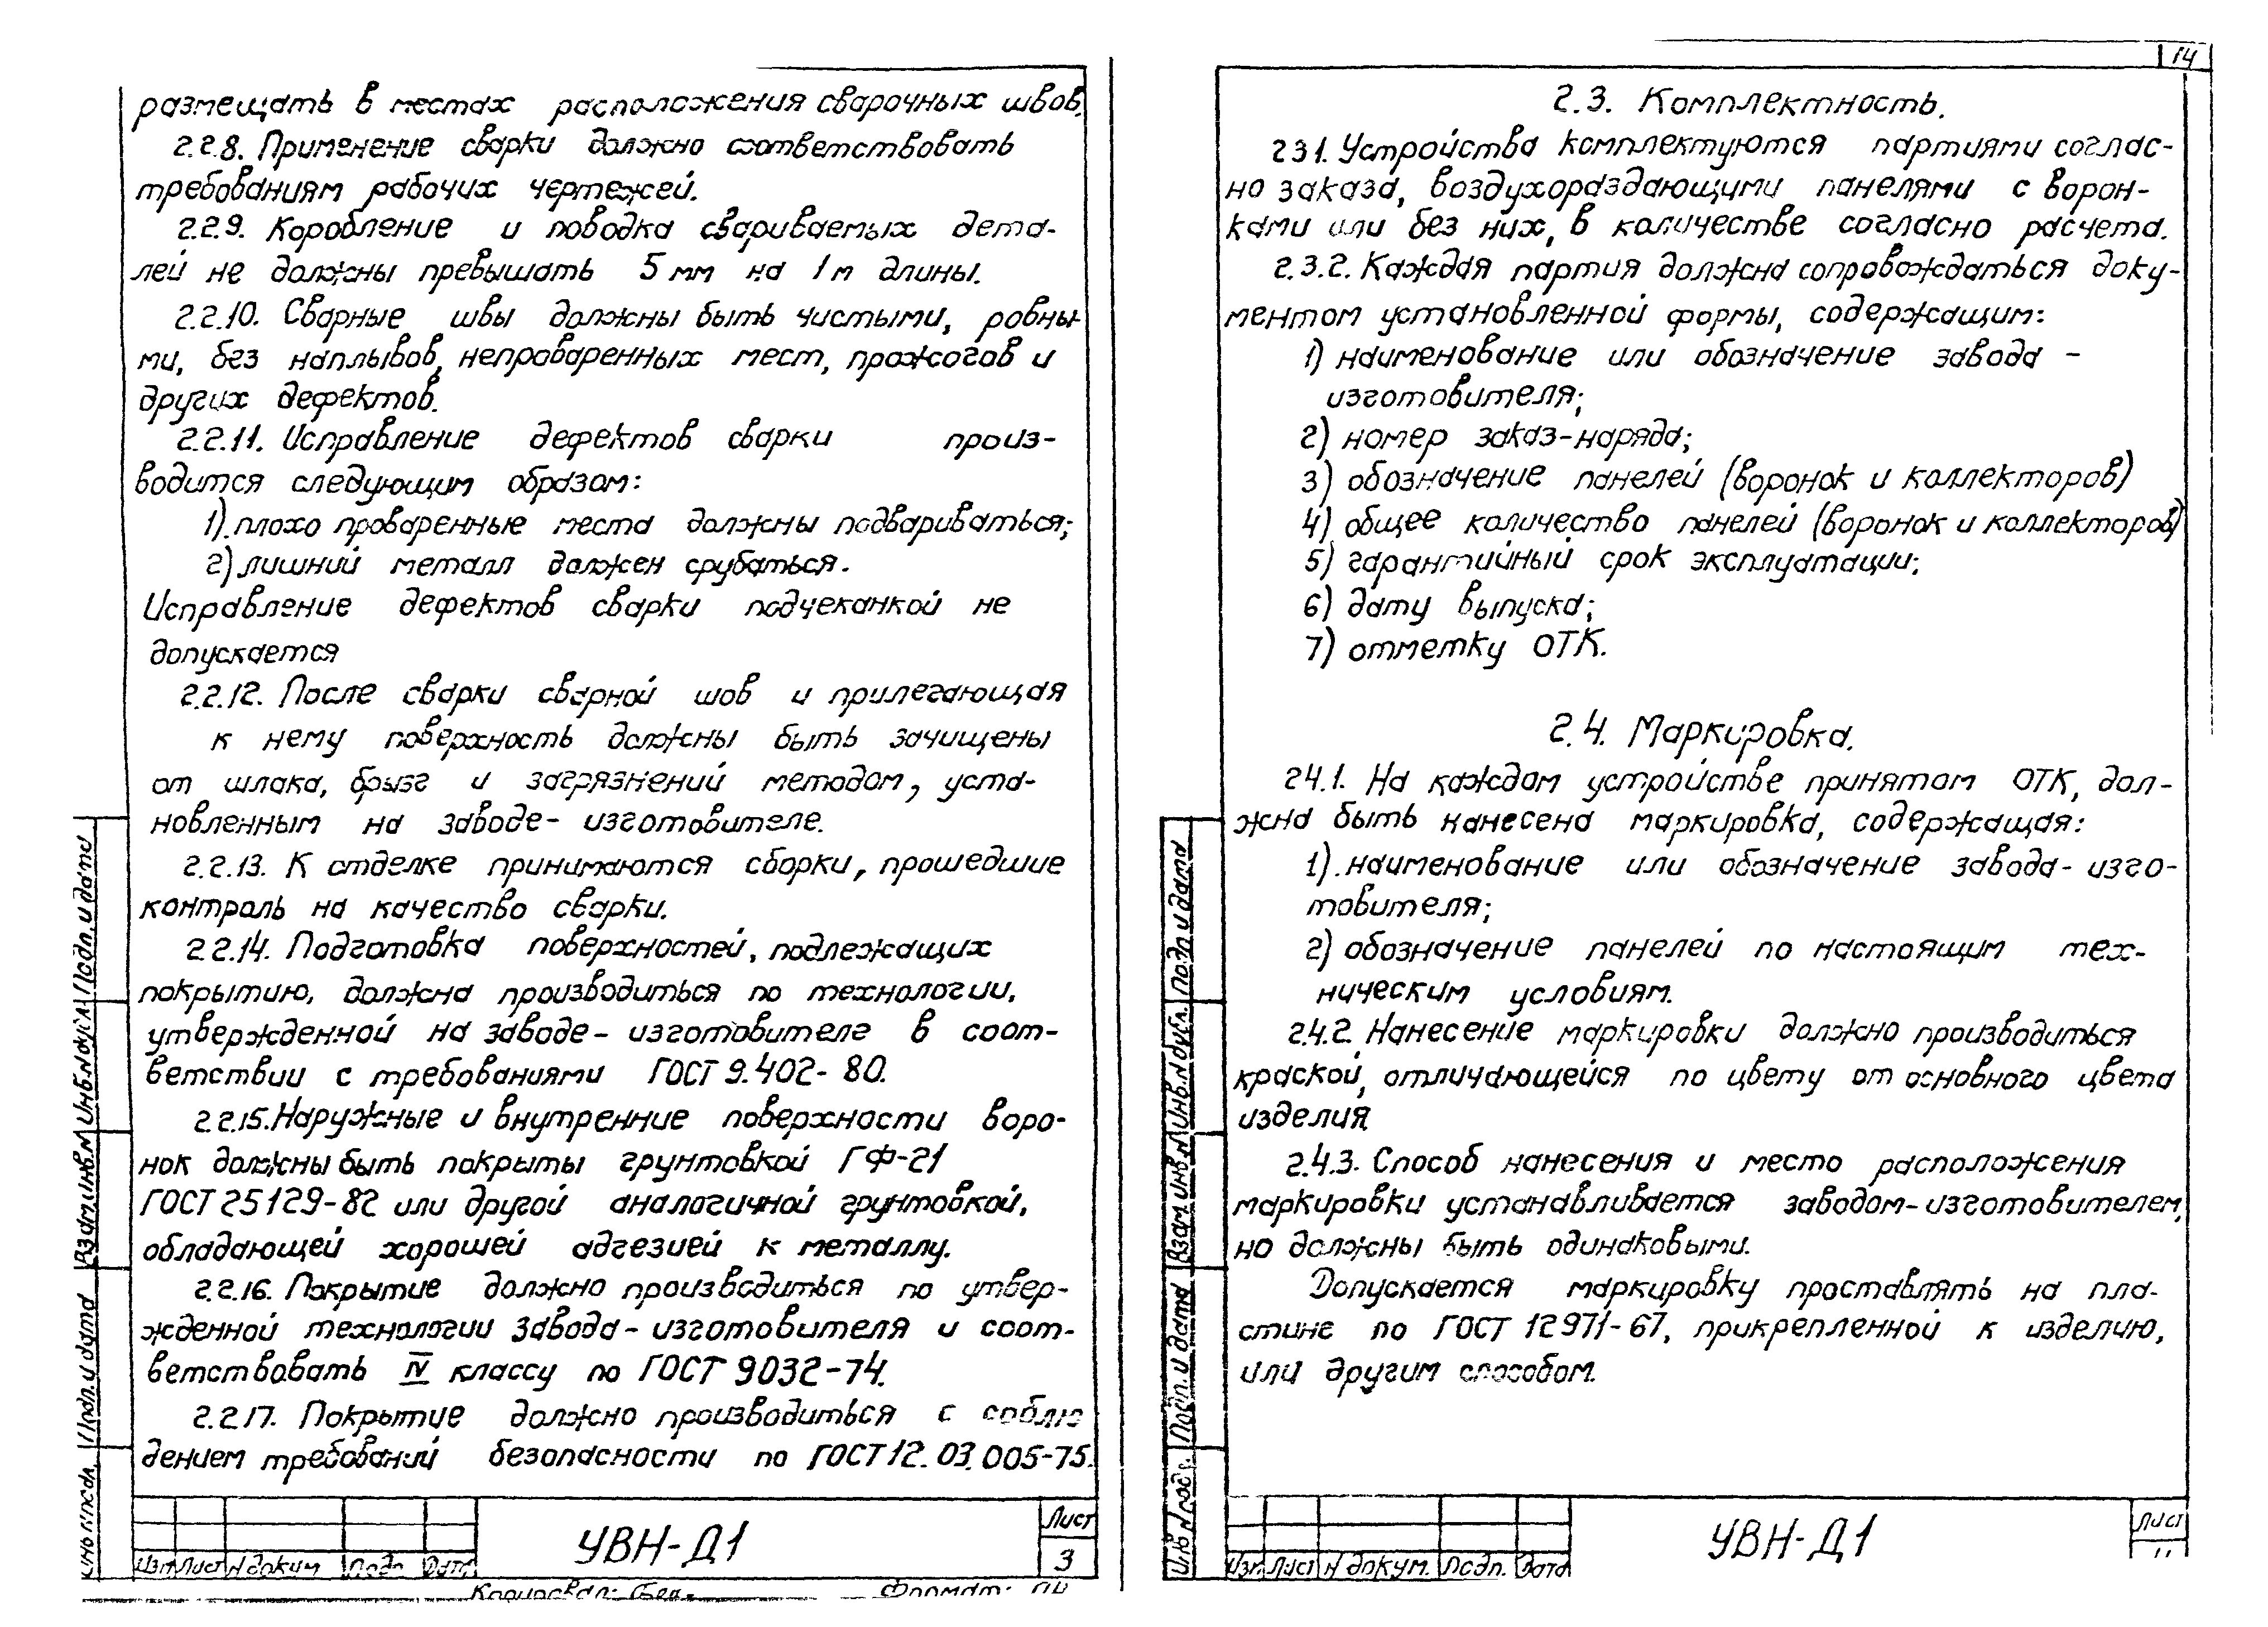 размещать в местах расположения сварочных швов.
2.2.8. Применение сварки должно соответствовать
требованиям рабочих чертежей.
2.2.9. Коробление и поводка свариваемых дета-
лей не должны превышать 5 мм на 1 м длины.
2.2.10. Сварные швы должны быть чистыми, ровны-
ми, без наплывов, непроваренных мест, прожогов и
других дефектов.
2.2.11. Исправление дефектов сварки произ-
водится следующим образом:
1). плохо проваренные места должны подвариваться;
2) лишний металл должен срубаться.
Исправление дефектов сварки подчеканкой не
допускается
2.2.12. После сварки сварной шов и прилегающая
к нему поверхность должны быть зачищены
от шлака, брызг и загрязнений методом, уста-
новленным на заводе-изготовителе.
2.2.13. К отделке принимаются сборки, прошедшие
контроль на качество сварки.
2.2.14. Подготовка поверхностей, подлежащих
покрытию, должна производиться по технологии,
утвержденной на заводе-изготовителе в соот-
ветствии с требованиями ГОСТ 9.402-80.
2.2.15. Наружные и внутренние поверхности воро-
нок должны быть покрыты грунтовкой ГФ-21
ГОСТ 25129-82 или другой аналогичной грунтовкой,
обладающей хорошей адгезией к металлу.
2.2.16. Покрытие должно производиться по утвер-
жденной технологии завода-изготовителя и соот-
ветствовать IV классу по ГОСТ 9032-74.
2.2.17. Покрытие должно производиться с соблю
дением требований безопасности по ГОСТ 12.03.005-75.
Изм Лист N докум Подп Дата
УВН-Д1
Лист
3
Копировал: Формат:
Подп. и дата
Инв.N дубл.
Взам.инв.N
Подп. и дата
14
2.3. Комплектность.
231. Устройства комплектуются партиями соглас-
но заказа, воздухораздающими панелями с ворон-
ками или без них, в количестве согласно расчета.
2.3.2. Каждая партия должна сопровождаться доку-
ментом установленной формы, содержащим:
1) наименование или обозначение завода -
изготовителя;
2) номер заказ-наряда;
3) обозначение панелей (воронок и коллекторов)
4) общее количество панелей (воронок и коллекторов)
5) гарантийный срок эксплуатации;
6) дату выпуска;
7) отметку ОТК.
2.4. Маркировка.
24.1. На каждом устройстве принятом ОТК, дол-
жна быть нанесена маркировка, содержащая:
1). наименование или обозначение завода-изго-
товителя;
2) обозначение панелей по настоящим тех-
ническим условиям.
2.4.2. Нанесение маркировки должно производиться
краской, отличающейся по цвету от основного цвета
изделия.
2.4.3. Способ нанесения и место расположения
маркировки устанавливается заводом-изготовителем,
но должны быть одинаковыми.
Допускается маркировку проставлять на пла-
стине по ГОСТ 12971-67, прикрепленной к изделию,
или другим способом.
Изм. Лист N докум. Подп. Дата
УВН-Д1
Лист
Подп. и дата
Инв.N дубл.
Взам. инв.N
Подп. и дата
Инв N подл.